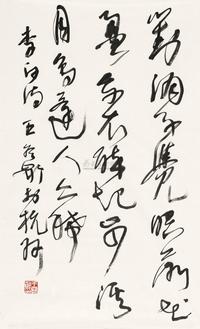 對酒不覺暝落花
盈我衣醉起步溪
月鳥還人亦稀
李白詩 王冬齡 杭州